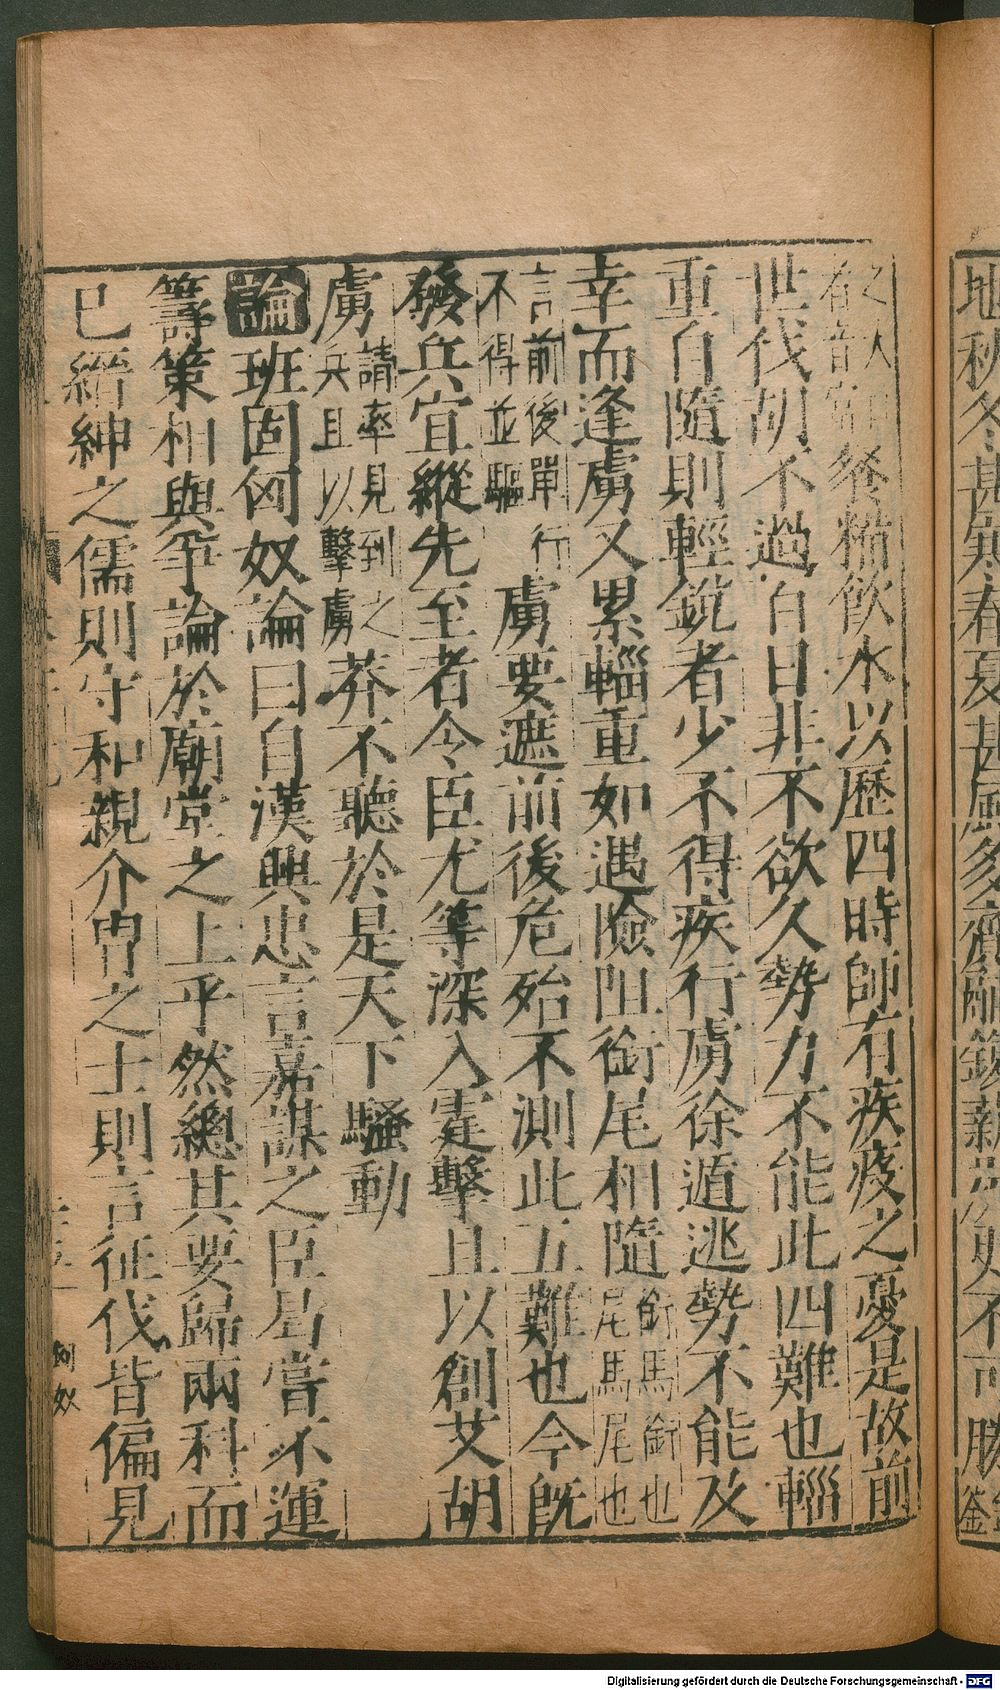 地秋冬甚寒春夏甚風多齎鬴鍑薪炭不可勝釜
食糒飲水以歷四時師有疾疫之憂是故前
世伐胡不過百日非不欲久勢力不能此四難也輜
重自隨則輕銳者少不得疾行虜徐遁逃勢不能及
幸而逢虜又累輜重如遇險阻銜尾相隨銜馬銜也尾馬尾也
言前後單行不得並驅虜要遮前後危殆不測此五難也今既
發兵宜縱先至者令臣尤等深入霆擊且以創艾胡
虜請率見到之兵且以擊虜莽不聽於是天下騷動
論班固匈奴論曰自漢興忠言嘉謀之臣曷嘗不運
籌策相與爭論於廟堂之上乎然總其要歸兩科而
已縉紳之儒則守和親介冑之士則言征伐皆偏見
匈奴
Digitalisierung gefördert durch die Deutsche Forschungsgemeinschaft - DFG